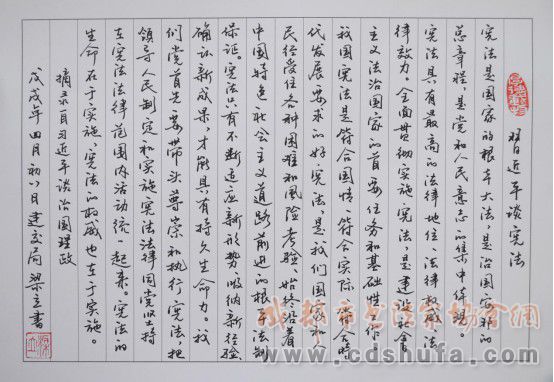 习近平谈宪法
宪法是国家的根本大法，是治国安邦的
总章程，是党和人民意志的集中体现。
宪法具有最高的法律地位、法律权威、法
律效力。全面贯彻实施宪法，是建设社会
主义法治国家的首要任务和基础性工作
我国宪法是符合国情、符合实际、符合时
代发展要求的好宪法，是我们国家和人
民经受住各种困难和风险考验、始终沿着
中国特色社会主义道路前进的根本法制
保证。宪法只有不断适应新形势、吸纳新经验
确认新成果，才能具有持久生命力。我
们党首先要带头尊崇和执行宪法，把
领导人民制定和实施宪法法律同党坚持
在宪法法律范围内活动统一起来。宪法的
生命在于实施，宪法的权威也在于实施。
摘录自习近平谈治国理政
戊戌年四月初八日建交局梁立书
www.cdshufa.com